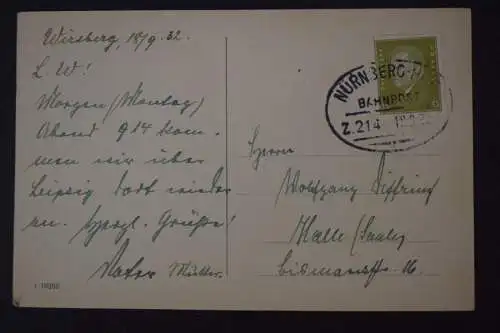 Wirsberg, 18/9. 32.
L. W!
Morgen (Montag)
Abend 9 24 kom-
men wir über
Leipzig dort wieder
an. Herzl. Grüße!
Vater Mutter.
NÜRNBERG-H
BAHNPOST
Z.214
Herrn
Wolfgang
Halle (Saale)
Bismarckstr. 16.